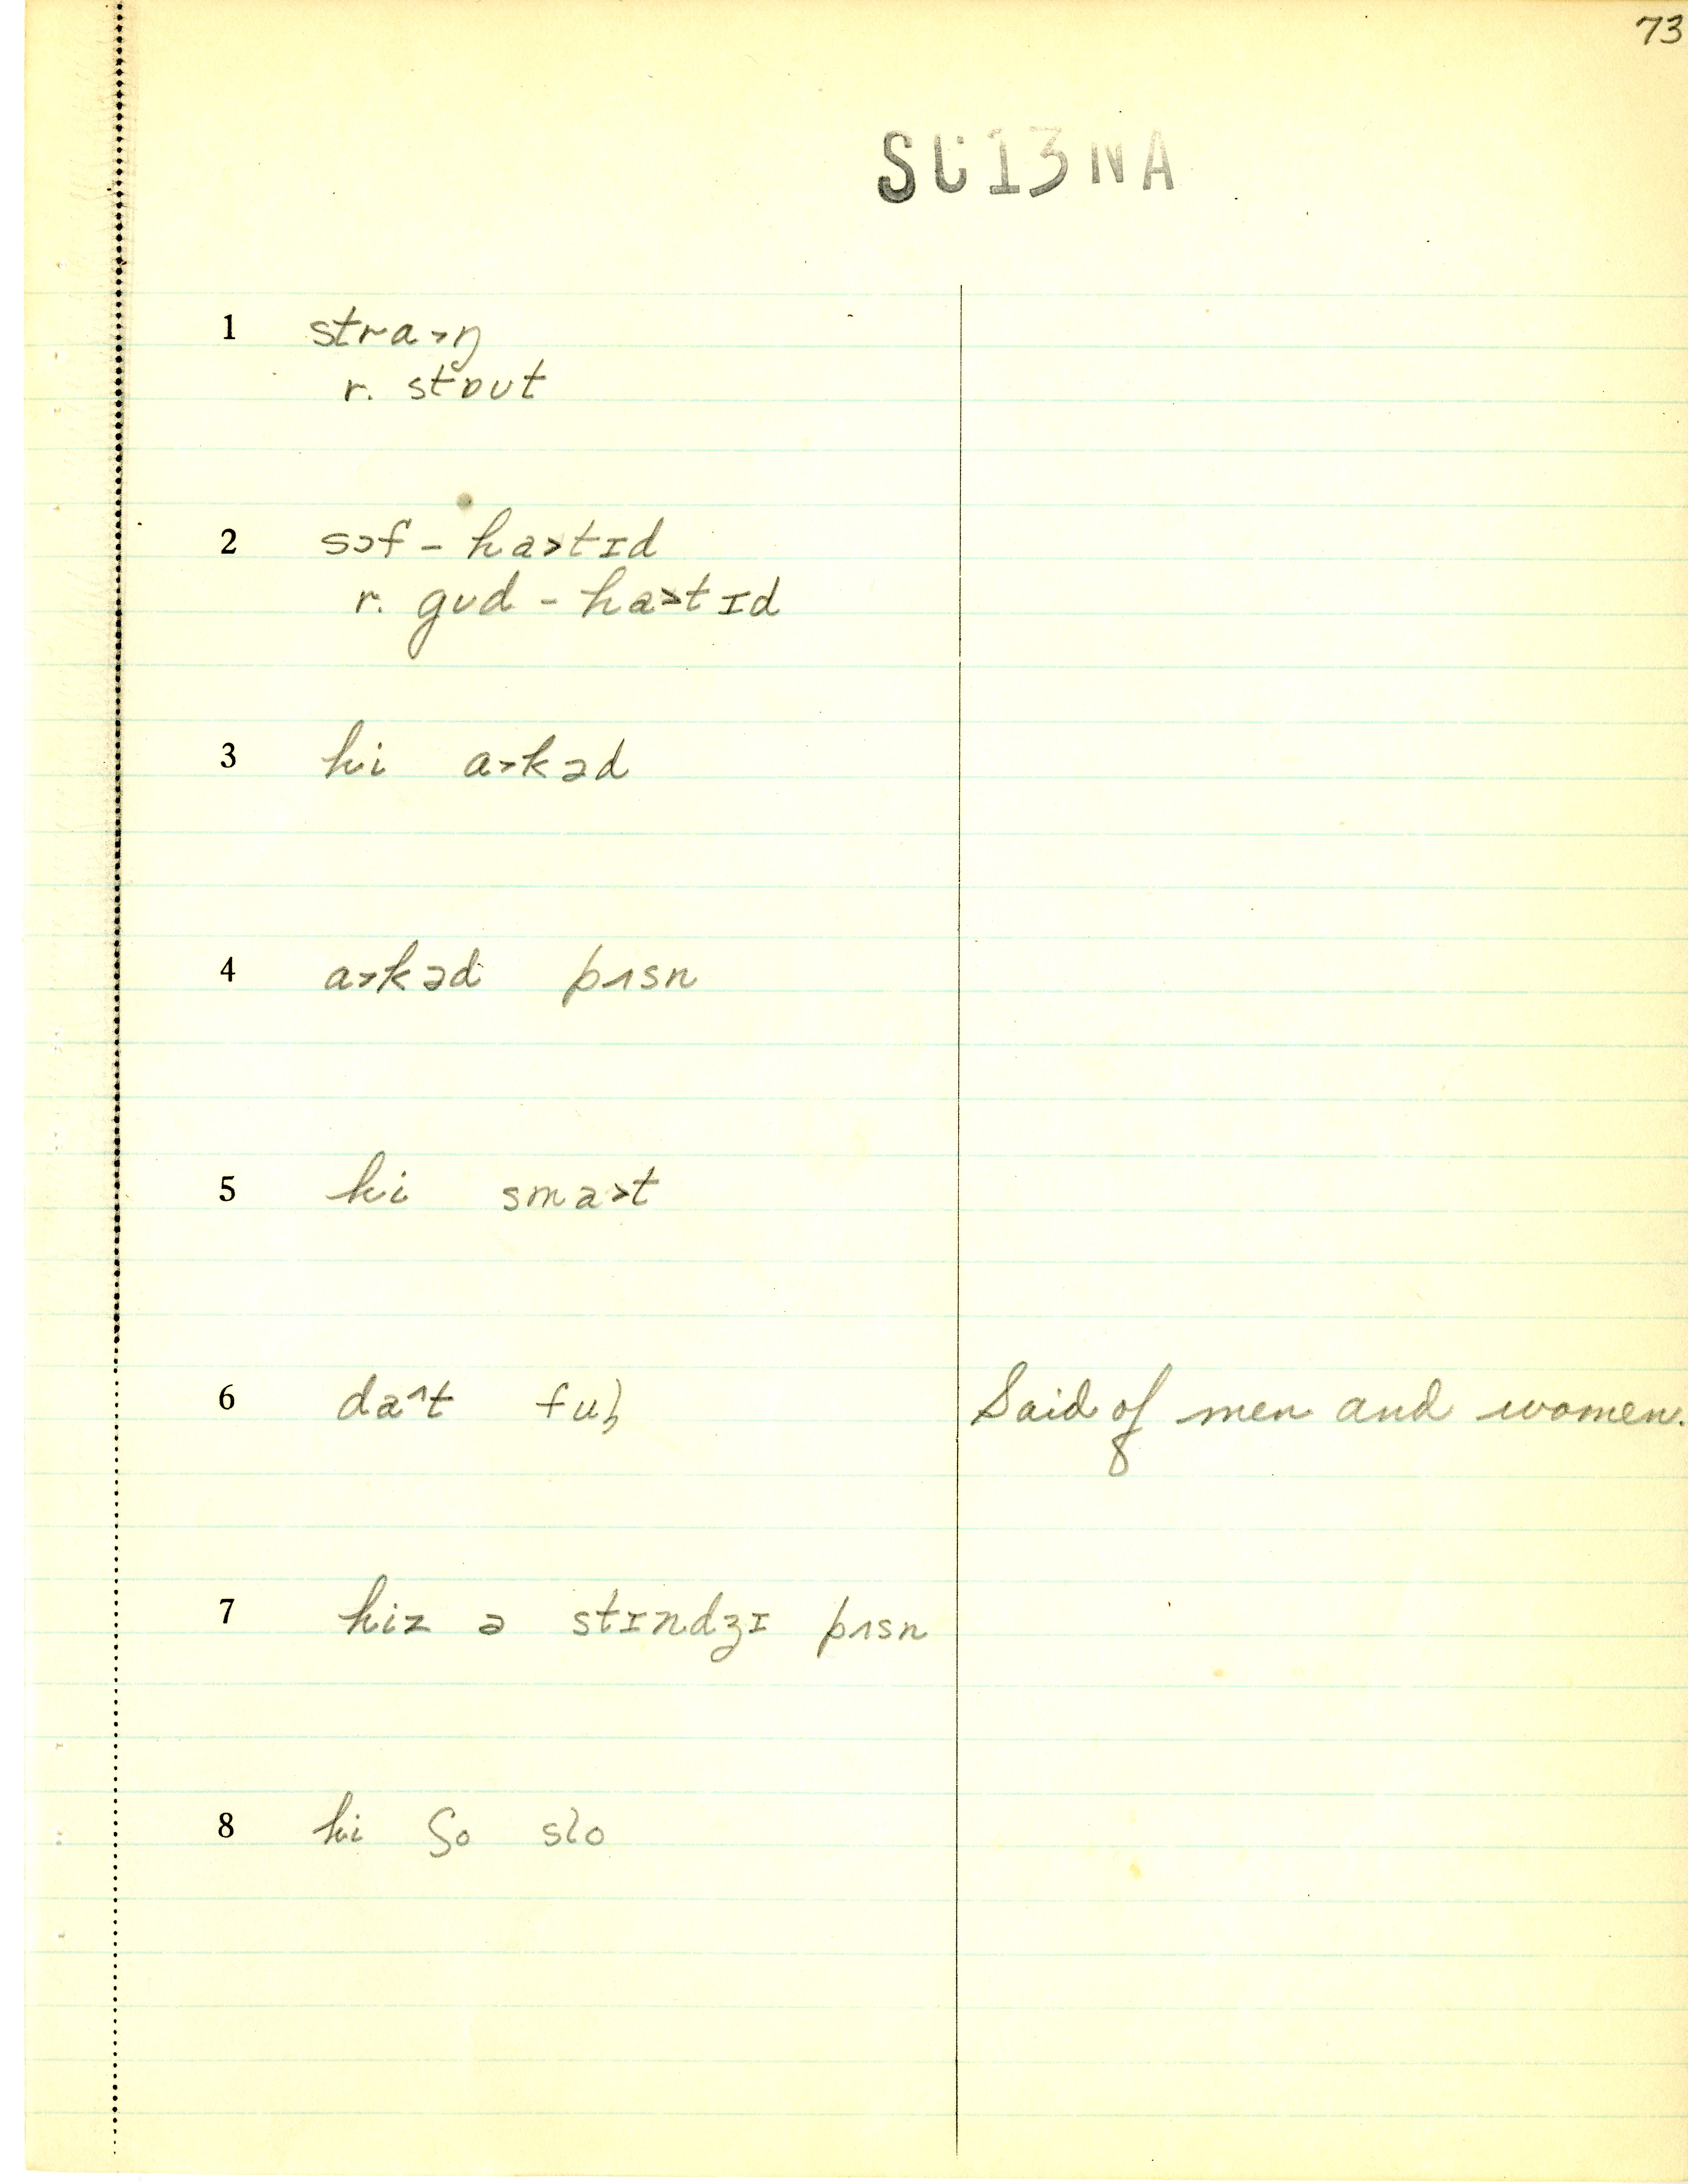 73
SC13NA
1 stra˃ŋ
r. stɒut
2 sɔf - ha˃tɪd
r. gʊd - ha˃tɪd
3 hi a˃kəd
4 a˃kəd pʌsn
5 hi sma˃t
6 da^t ful̩ Said of men and women.
7 hiz ə stɪndʒɪ pʌsn
8 hi ʃo slo